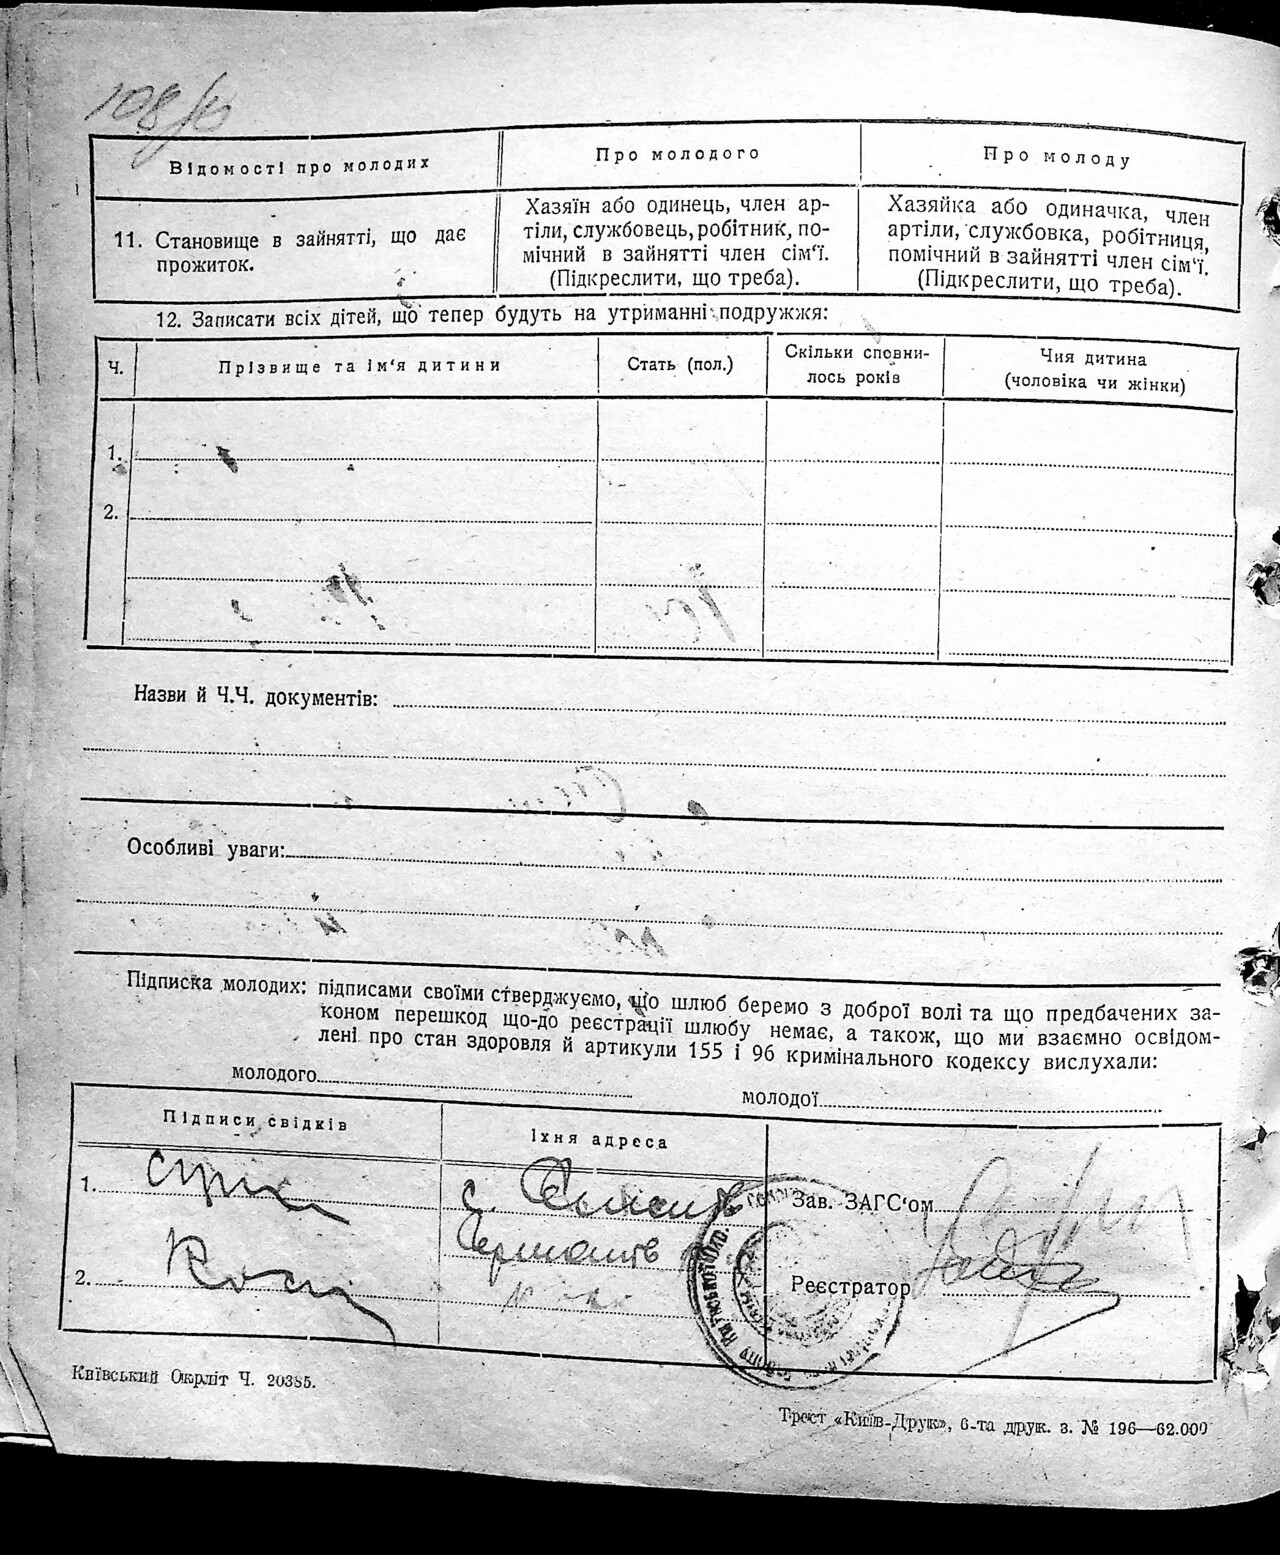 108
Відомості про молодих
Про молодого
Про молоду
11. Становище в зайнятті, що дає
прожиток.
Хазяїн або одинець, член ар-
тіли, службовець, робітник, по-
мічний в зайнятті член сім‘ї.
(Підкреслити, що треба).
Хазяйка або одиначка, член
артіли, службовка, робітниця,
помічний в зайнятті член сім‘ї.
(Підкреслити, що треба).
12. Записати всіх дітей, що тепер будуть на утриманні подружжя:
Ч.
Прізвище та ім‘я дитини
Стать (пол.)
Скільки сповни-
лось років
Чия дитина
(чоловіка чи жінки)
1.
2.
Назви й Ч.Ч. документів:
Особливі уваги:
Підписка молодих: підписами своїми стверджуємо, що шлюб беремо з доброї волі та що предбачених за-
коном перешкод що-до реєстрації шлюбу немає, а також, що ми взаємно освідом-
лені про стан здоровля й артикули 155 і 96 кримінального кодексу вислухали:
молодого
молодої
Підписи свідків
Їхня адреса
1.
с.
Зав. ЗАГС‘ом
2.
Реєстратор
Київський Окрліт Ч. 20385.
Трест «Київ-Друк», 6-та друк. з. № 196—62.000